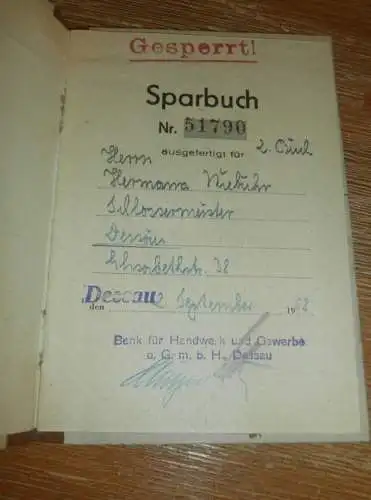 Gesperrt!
Sparbuch
Nr. 51790
ausgefertigt für 2. Buch
Herrn
Hermann Niebuhr
Schlossermeister
Dessau
Elisabethstr. 38
Dessau
den 2. September 19
Bank für Handwerk und Gewerbe
e. G. m. b. H., Dessau